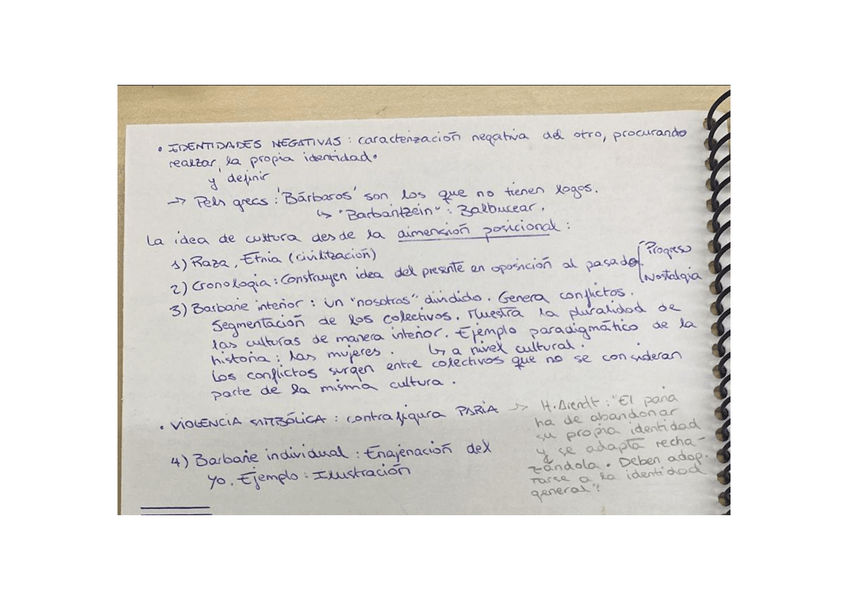 • IDENTIDADES NEGATIVAS : caracterización negativa del otro, procurando
realzar la propia identidad.
y definir
→ Pels grecs : 'Bárbaros' son los que no tienen logos.
↳ "Barbantzein" : Balbucear.
La idea de cultura desde la dimensión posicional :
1) Raza, Etnia (civilización)
2) Cronologia : Construyen idea del presente en oposición al pasado
Progreso
Nostalgia
3) Barbarie interior : un "nosotros" dividido. Genera conflictos.
Segmentación de los colectivos. Muestra la pluralidad de
las culturas de manera interior. Ejemplo paradigmático de la
historia : las mujeres. ↳ a nivel cultural.
Los conflictos surgen entre colectivos que no se consideran
parte de la misma cultura.
• VIOLENCIA SIMBÓLICA : contrafigura PARIA →
H. Arendt : "El paria
ha de abandonar
su propia identidad
y se adapta recha-
zándola. Deben adop-
tarse a la identidad
general"
4) Barbarie individual : Enajenación del
Yo. Ejemplo : Ilustración